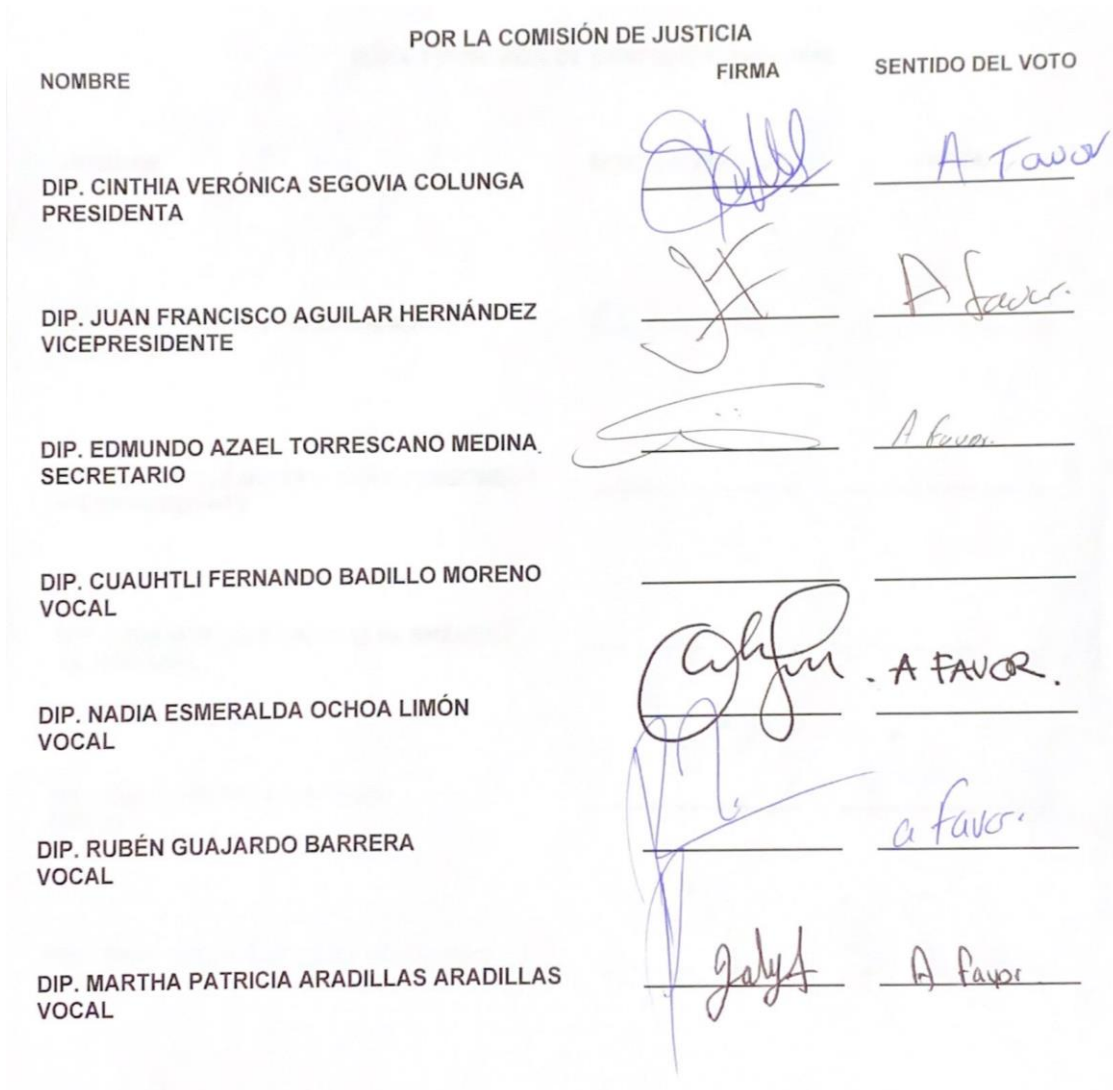 POR LA COMISIÓN DE JUSTICIA
NOMBRE FIRMA SENTIDO DEL VOTO
DIP. CINTHIA VERÓNICA SEGOVIA COLUNGA A Favor
PRESIDENTA
DIP. JUAN FRANCISCO AGUILAR HERNÁNDEZ A favor.
VICEPRESIDENTE
DIP. EDMUNDO AZAEL TORRESCANO MEDINA A favor.
SECRETARIO
DIP. CUAUHTLI FERNANDO BADILLO MORENO
VOCAL
DIP. NADIA ESMERALDA OCHOA LIMÓN A FAVOR.
VOCAL
DIP. RUBÉN GUAJARDO BARRERA a favor.
VOCAL
DIP. MARTHA PATRICIA ARADILLAS ARADILLAS A favor
VOCAL